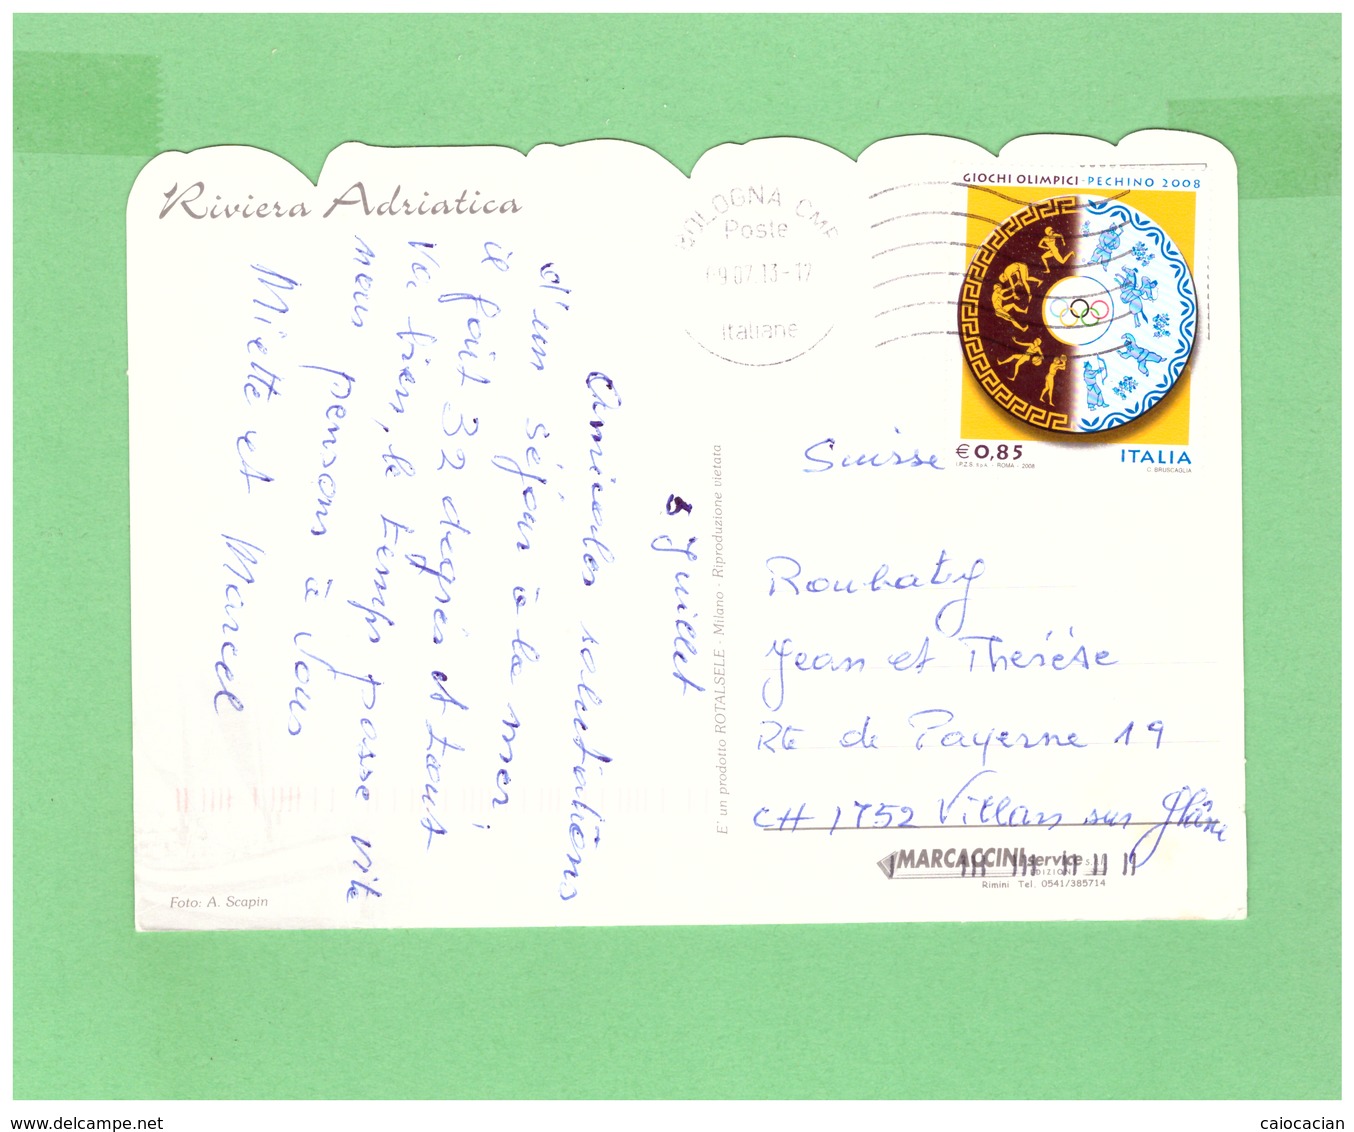 Riviera Adriatica
BOLOGNA CMP
Poste
09.07.13-17
Italiane
GIOCHI OLIMPICI - PECHINO 2008
€ 0,85
ITALIA
I.P.Z.S. S.p.A. - ROMA - 2008
C. BRUSCAGLIA
5 Juillet
Amicales salutations
d'un séjour à la mer,
il fait 32 degrés et tout
va bien, le temps passe vite
nous pensons à vous
Miette et Marcel
E' un prodotto ROTALSELE - Milano - Riproduzione vietata
Suisse
Roubaty
Jean et Thérèse
Rte de Payerne 19
CH 1752 Villars sur Glâne
MARCACCINI service s.r.l.
EDIZIONI
Rimini Tel. 0541/385714
Foto: A. Scapin
www.delcampe.net
caiocacian